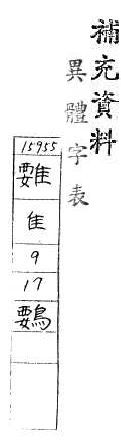 補充資料
異體字表
15955
隹
9
17